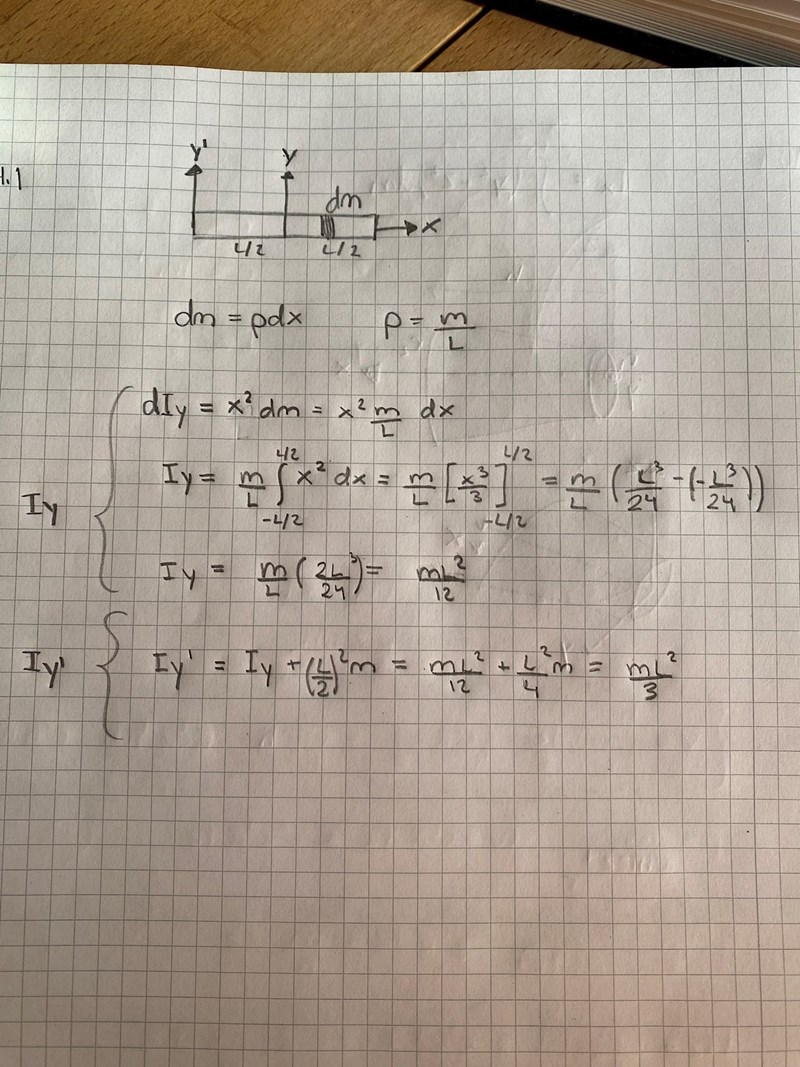 1.1
y' y
dm
x
L/2 L/2
dm = ρdx ρ = m/L
dIy = x² dm = x² m/L dx
Iy = m/L ∫_{-L/2}^{L/2} x² dx = m/L [x³/3]_{-L/2}^{L/2} = m/L (L³/24 - (-L³/24))
Iy
Iy = m/L (2L³/24) = mL²/12
Iy' Iy' = Iy + (L/2)²m = mL²/12 + L²/4 m = mL²/3